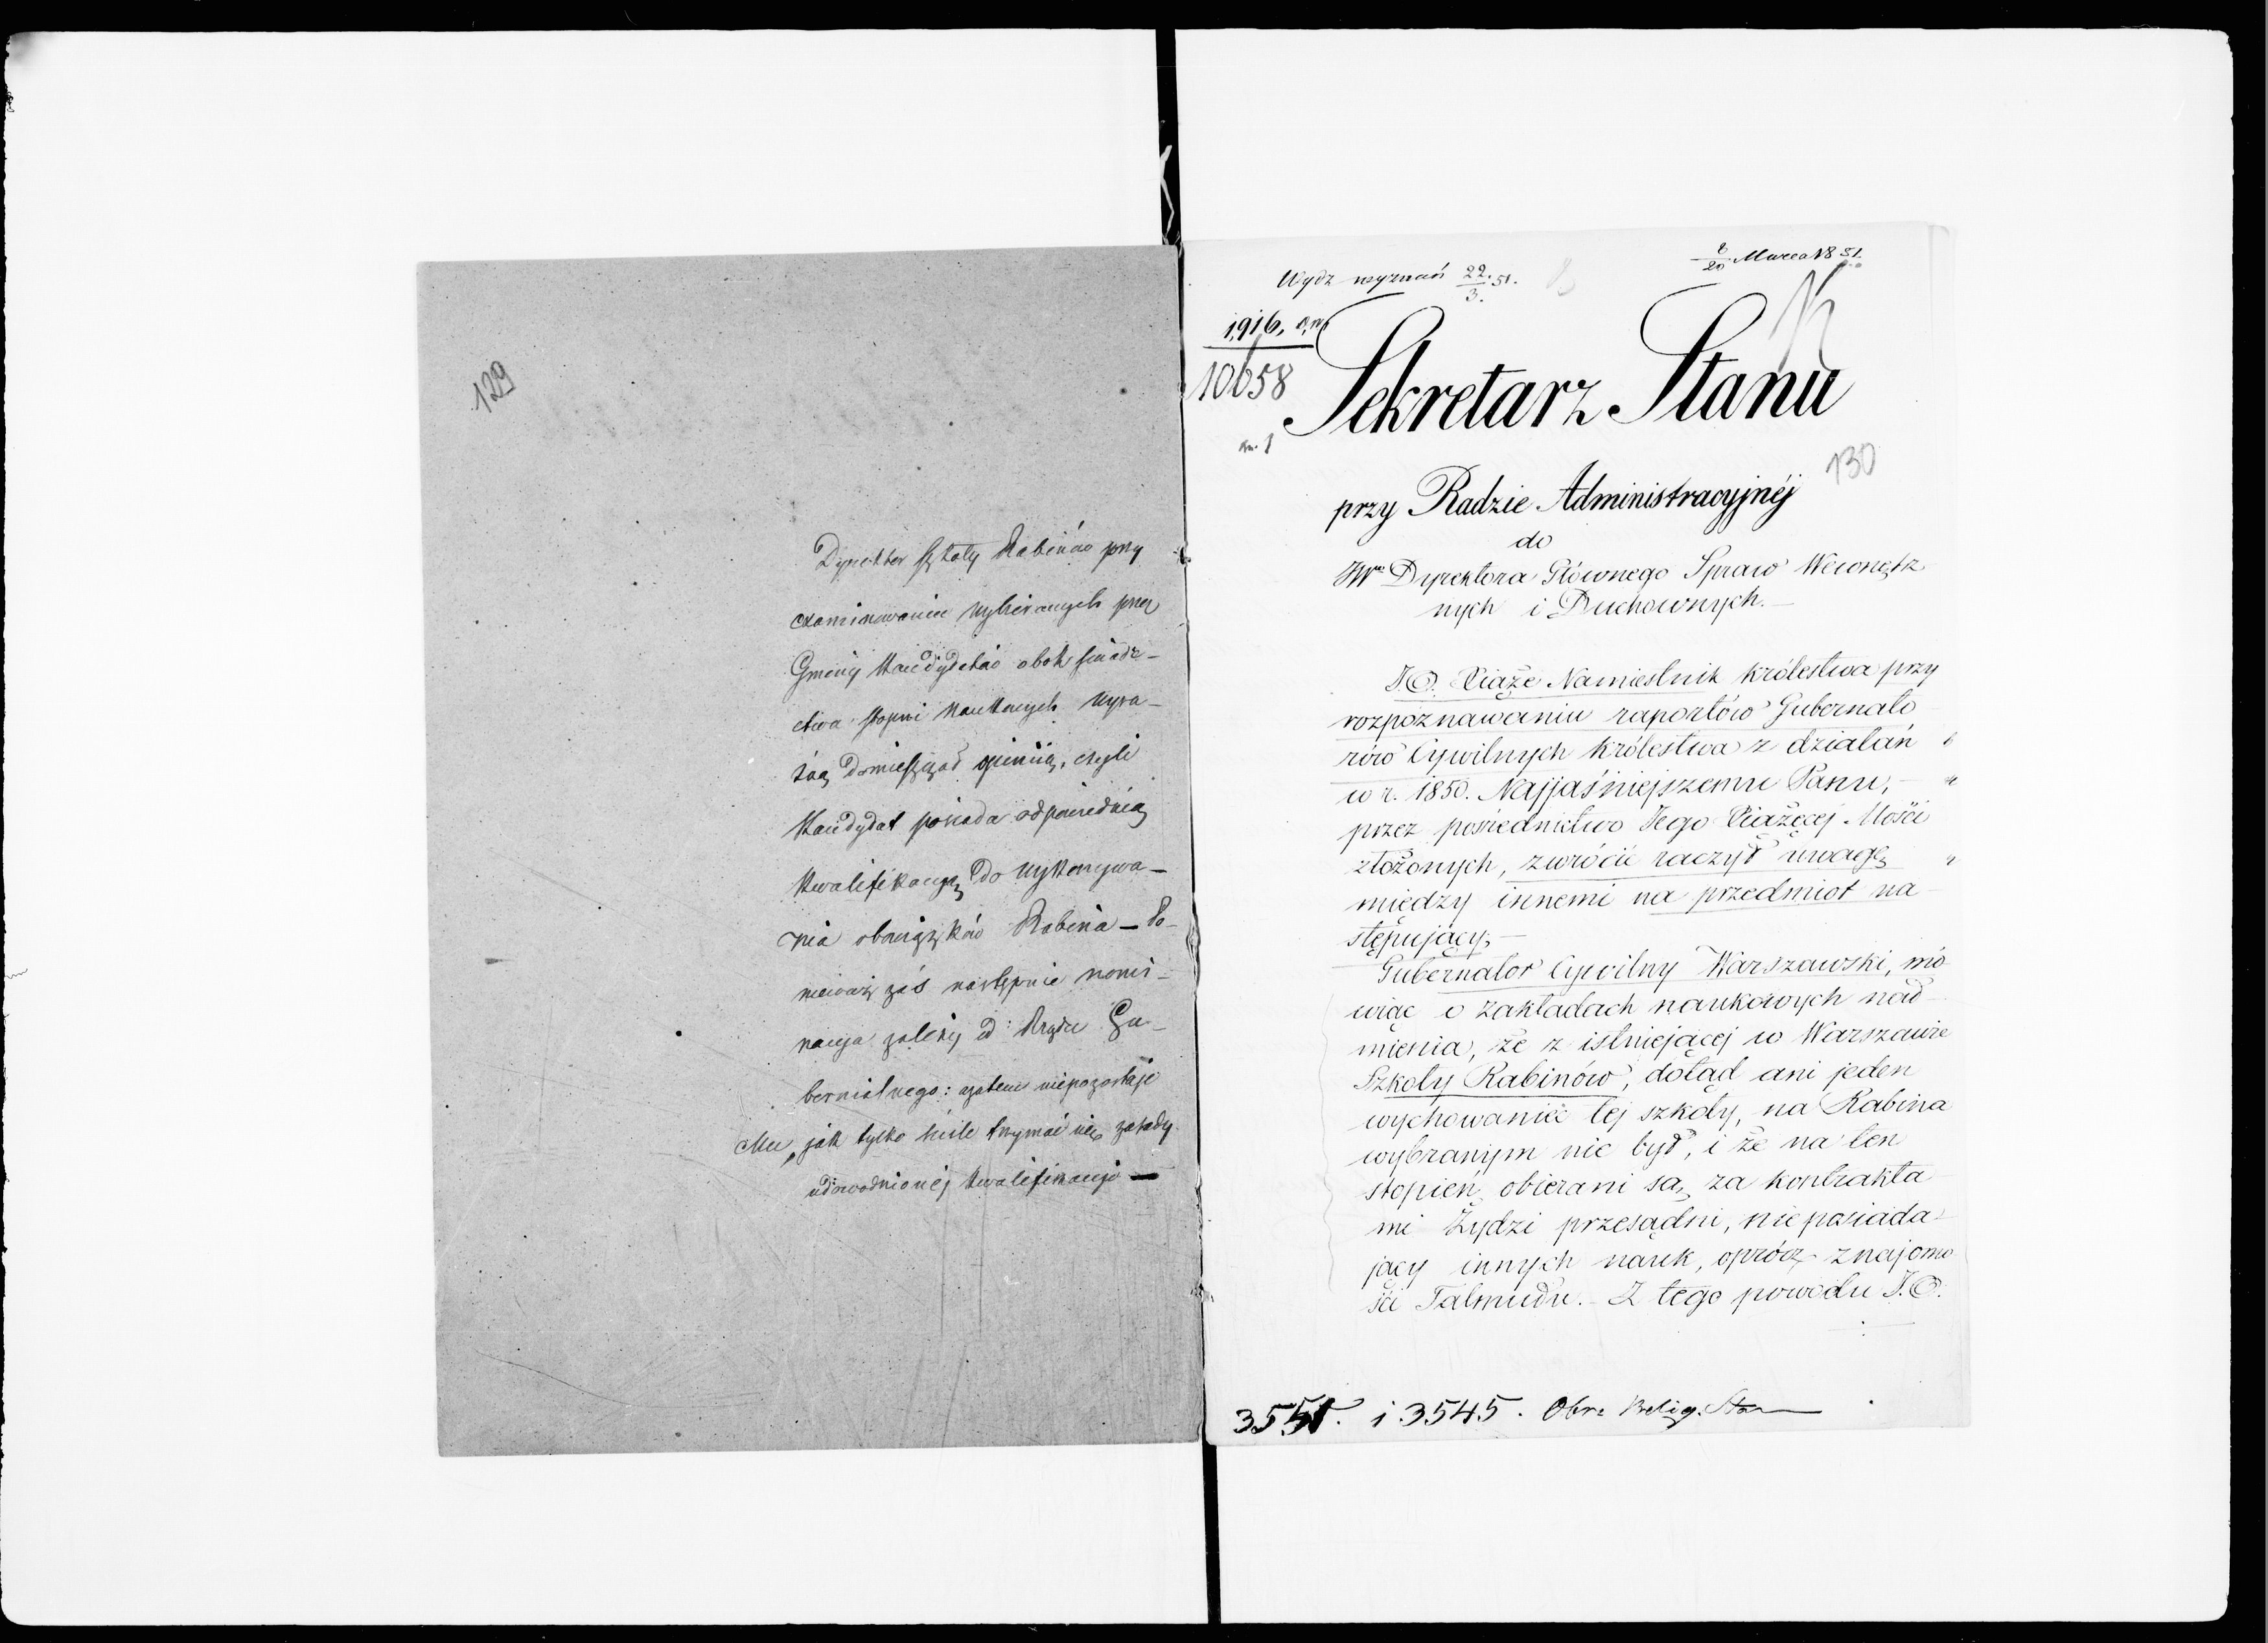 129
Dyrektor szkoły Rabinów przy
examinowaniu wybieranych przez
Gminy Kandydatów obok świade-
ctwa stopni naukowych wyra-
zać domieszczać opiniią, czyli
Kandydat posiada odpowiednią
Kwalifikacyą do wykonywa-
nia obowiązków Rabina — Po-
nieważ zaś następnie nomi-
nacya zależy od Rządu Gu-
bernialnego: zatem niepozostaje
Mu, jak tylko ściśle trzymać się zasady
udowodnionéj kwalifikacyi —
8/20 Marca 1851.
Wydz wyznań 22/3. 51.
1916.
10658
Sekretarz Stanu
130
przy Radzie Administracyjnéj
do
JWo Dyrektora Głównego Spraw Wewnętrz
nych i Duchownych.—
J.O. Xiąże Namiestnik Królestwa przy
rozpoznawaniu raportów Gubernato
rów Cywilnych Królestwa z działań
w r. 1850. Najjaśniejszemu Panu,—
przez pośrednictwo Jego Xiążęcéj Mości
złożonych, zwrócić raczył uwagę
między innemi na przedmiot na
stępujący.—
Gubernator Cywilny Warszawski, mó
wiąc o zakładach naukowych nad
mienia, że z istniejącéj w Warszawie
Szkoły Rabinów, dotąd ani jeden
wychowaniec téj szkoły, na Rabina
wybranym nie był, i że na ten
stopień obierani są, za kontrakta
mi Żydzi przesądni, nie posiada-
jący innych nauk, oprócz znajomo
ści Talmudu.— Z tego powodu J.O.
3551. i 3545. Obrz Relig. Star